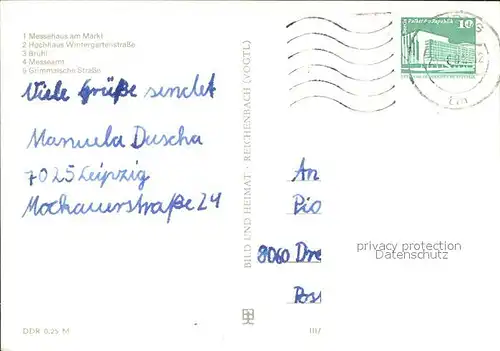 1 Messehaus am Markt
2 Hochhaus Wintergartenstraße
3 Brühl
4 Messeamt
5 Grimmaische Straße
Viele Grüße sendet
Manuela Duscha
7025 Leipzig
Mockauerstraße 24
BILD UND HEIMAT · REICHENBACH (VOGTL)
10
An
Pio
8060 Dre
Poss
privacy protection
Datenschutz
DDR 0,25 M
III/